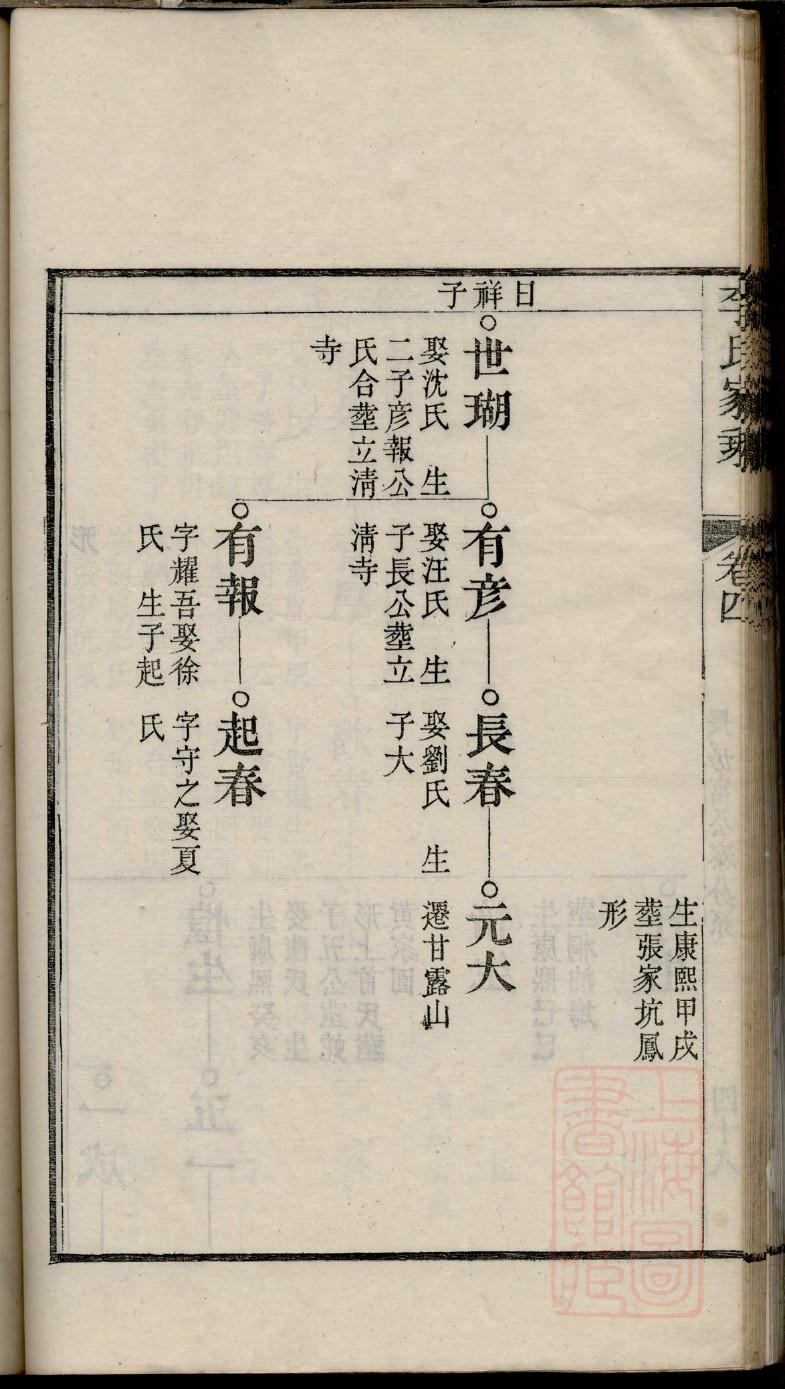 李氏家乘
卷四
生康熙甲戌
塟張家坑鳳
形
日祥子
世瑚
娶沈氏　生
二子彦報公
氏合塟立淸
寺
有彦
娶汪氏　生
子長公塟立
淸寺
長春
娶劉氏　生
子大
元大
遷甘露山
有報
字耀吾娶徐
氏　生子起
起春
字守之娶夏
氏
上海圖
書館藏